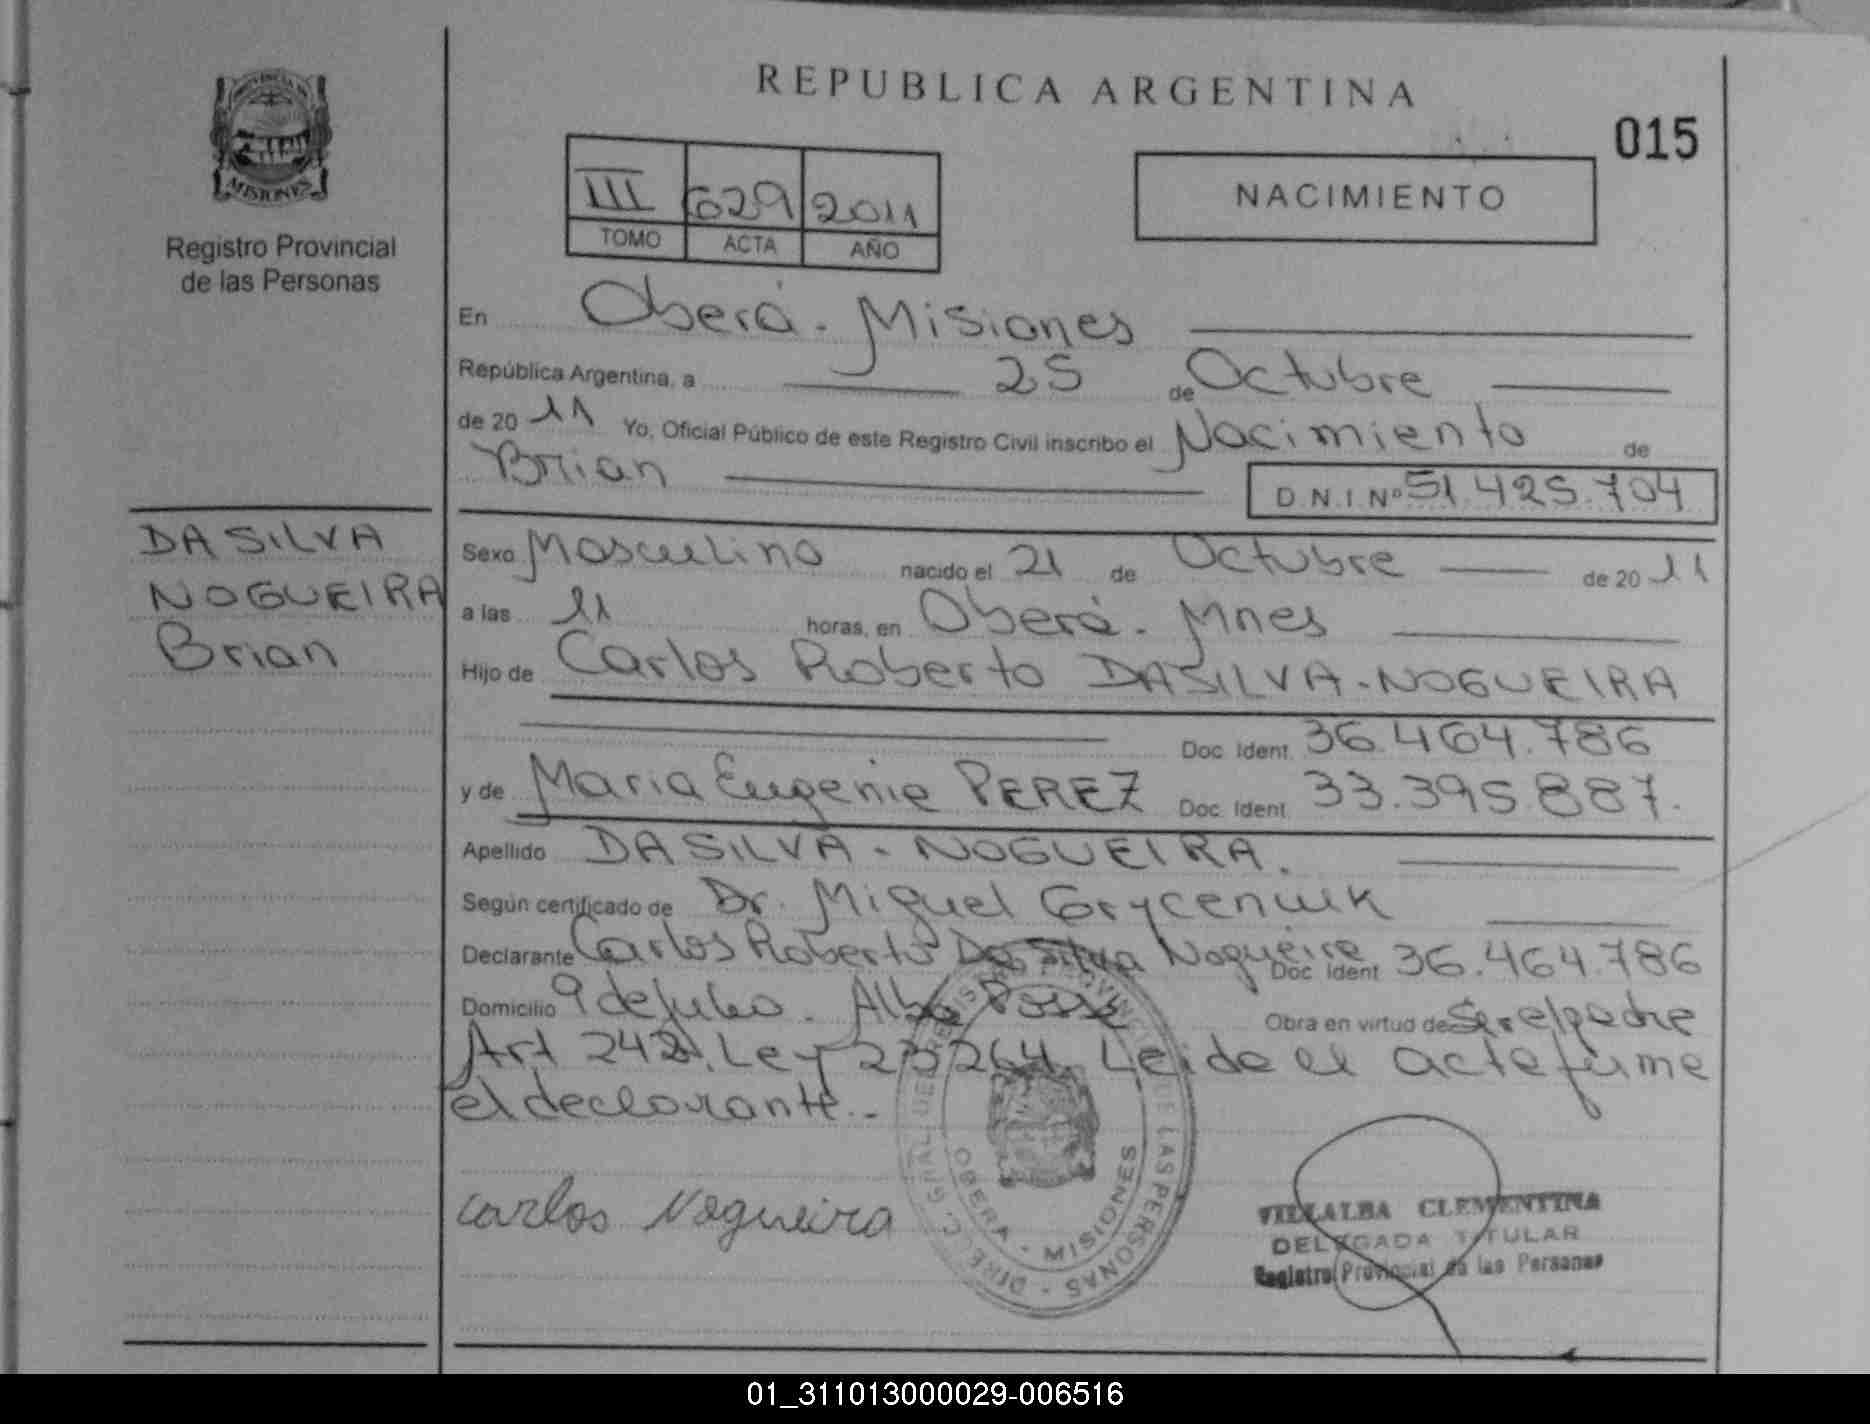 REPUBLICA ARGENTINA
015
PROVINCIA DE
MISIONES
Registro Provincial
de las Personas
III 629 2011
TOMO ACTA AÑO
NACIMIENTO
En Oberá - Misiones
República Argentina, a 25 de Octubre
de 20 11 Yo, Oficial Público de este Registro Civil inscribo el Nacimiento de
Brian D.N.I Nº 51.425.704
DA SILVA
NOGUEIRA
Brian
Sexo Masculino nacido el 21 de Octubre de 20 11
a las 11 horas, en Oberá - Mnes
Hijo de Carlos Roberto DASILVA-NOGUEIRA
Doc. Ident. 36.464.786
y de Maria Eugenia PEREZ Doc. Ident. 33.395.887.
Apellido DA SILVA - NOGUEIRA.
Según certificado de Dr. Miguel Gryceniuk
Declarante Carlos Roberto Da Silva Nogueira Doc. Ident. 36.464.786
Domicilio 9 de Julio. Alba Posse Obra en virtud de Ser el padre
Art 242. Ley 23264. Leida el acta firma
el declarante.-
Carlos Nogueira
DIRECC. GRAL. DEL REGISTRO PROVINCIAL DE LAS PERSONAS
OBERA - MISIONES
VILLALBA CLEMENTINA
DELEGADA TITULAR
Registro Provincial de las Personas
01_311013000029-006516